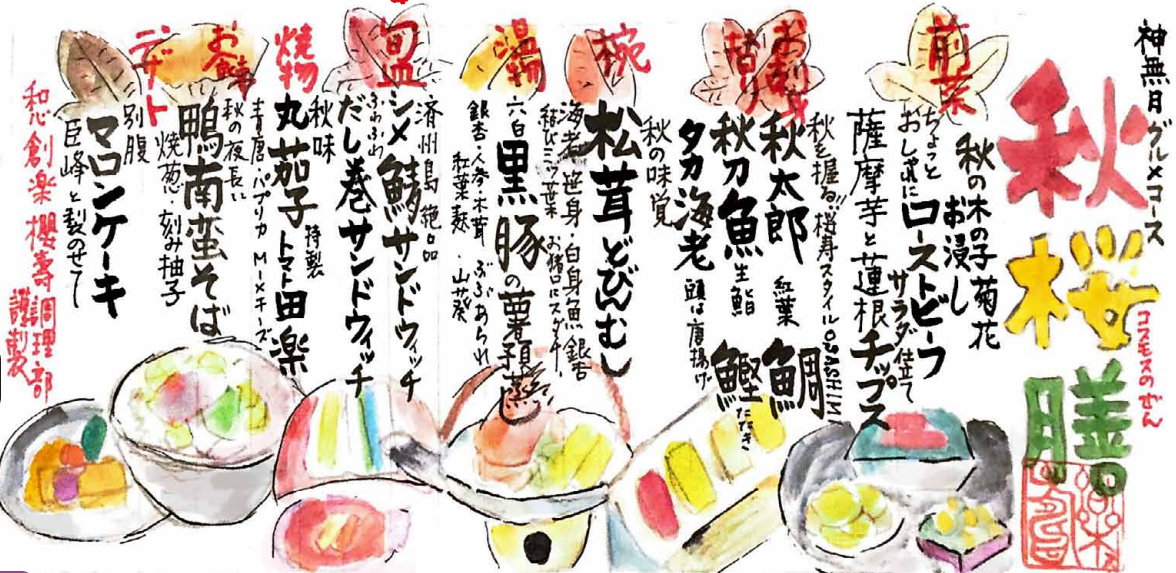 神無月グルメコース
秋桜膳
コスモスのぜん
前菜
秋の木の子菊花
お浸し
ちょっと
おしゃれにローストビーフ
サラダ仕立て
薩摩芋と蓮根チップス
お刺身
替り
秋を握る。桜寿スタイルOSASHIMI
秋太郎 紅葉鯛
秋刀魚生鮨 鰹たたき
タカ海老 頭は唐揚げ
椀
秋の味覚
松茸どびんむし
海老・笹身・白身魚・銀杏
結びミツ葉 お猪口にスダチ
温物
六白黒豚の薯預蒸し
銀杏・人参・木茸 ぶぶあられ
紅葉麩・山葵
旬皿
済州島絶品
〆鯖サンドウィッチ
ふわふわ
だし巻サンドウィッチ
焼物
秋味
丸茄子特製トマト田楽
青唐・パプリカ Mーメチーズ
お食事
秋の夜長に
鴨南蛮そば
焼葱・刻み柚子
デザート
別腹
マロンケーキ
巨峰と梨のせて
和創楽櫻壽調理部
謹製